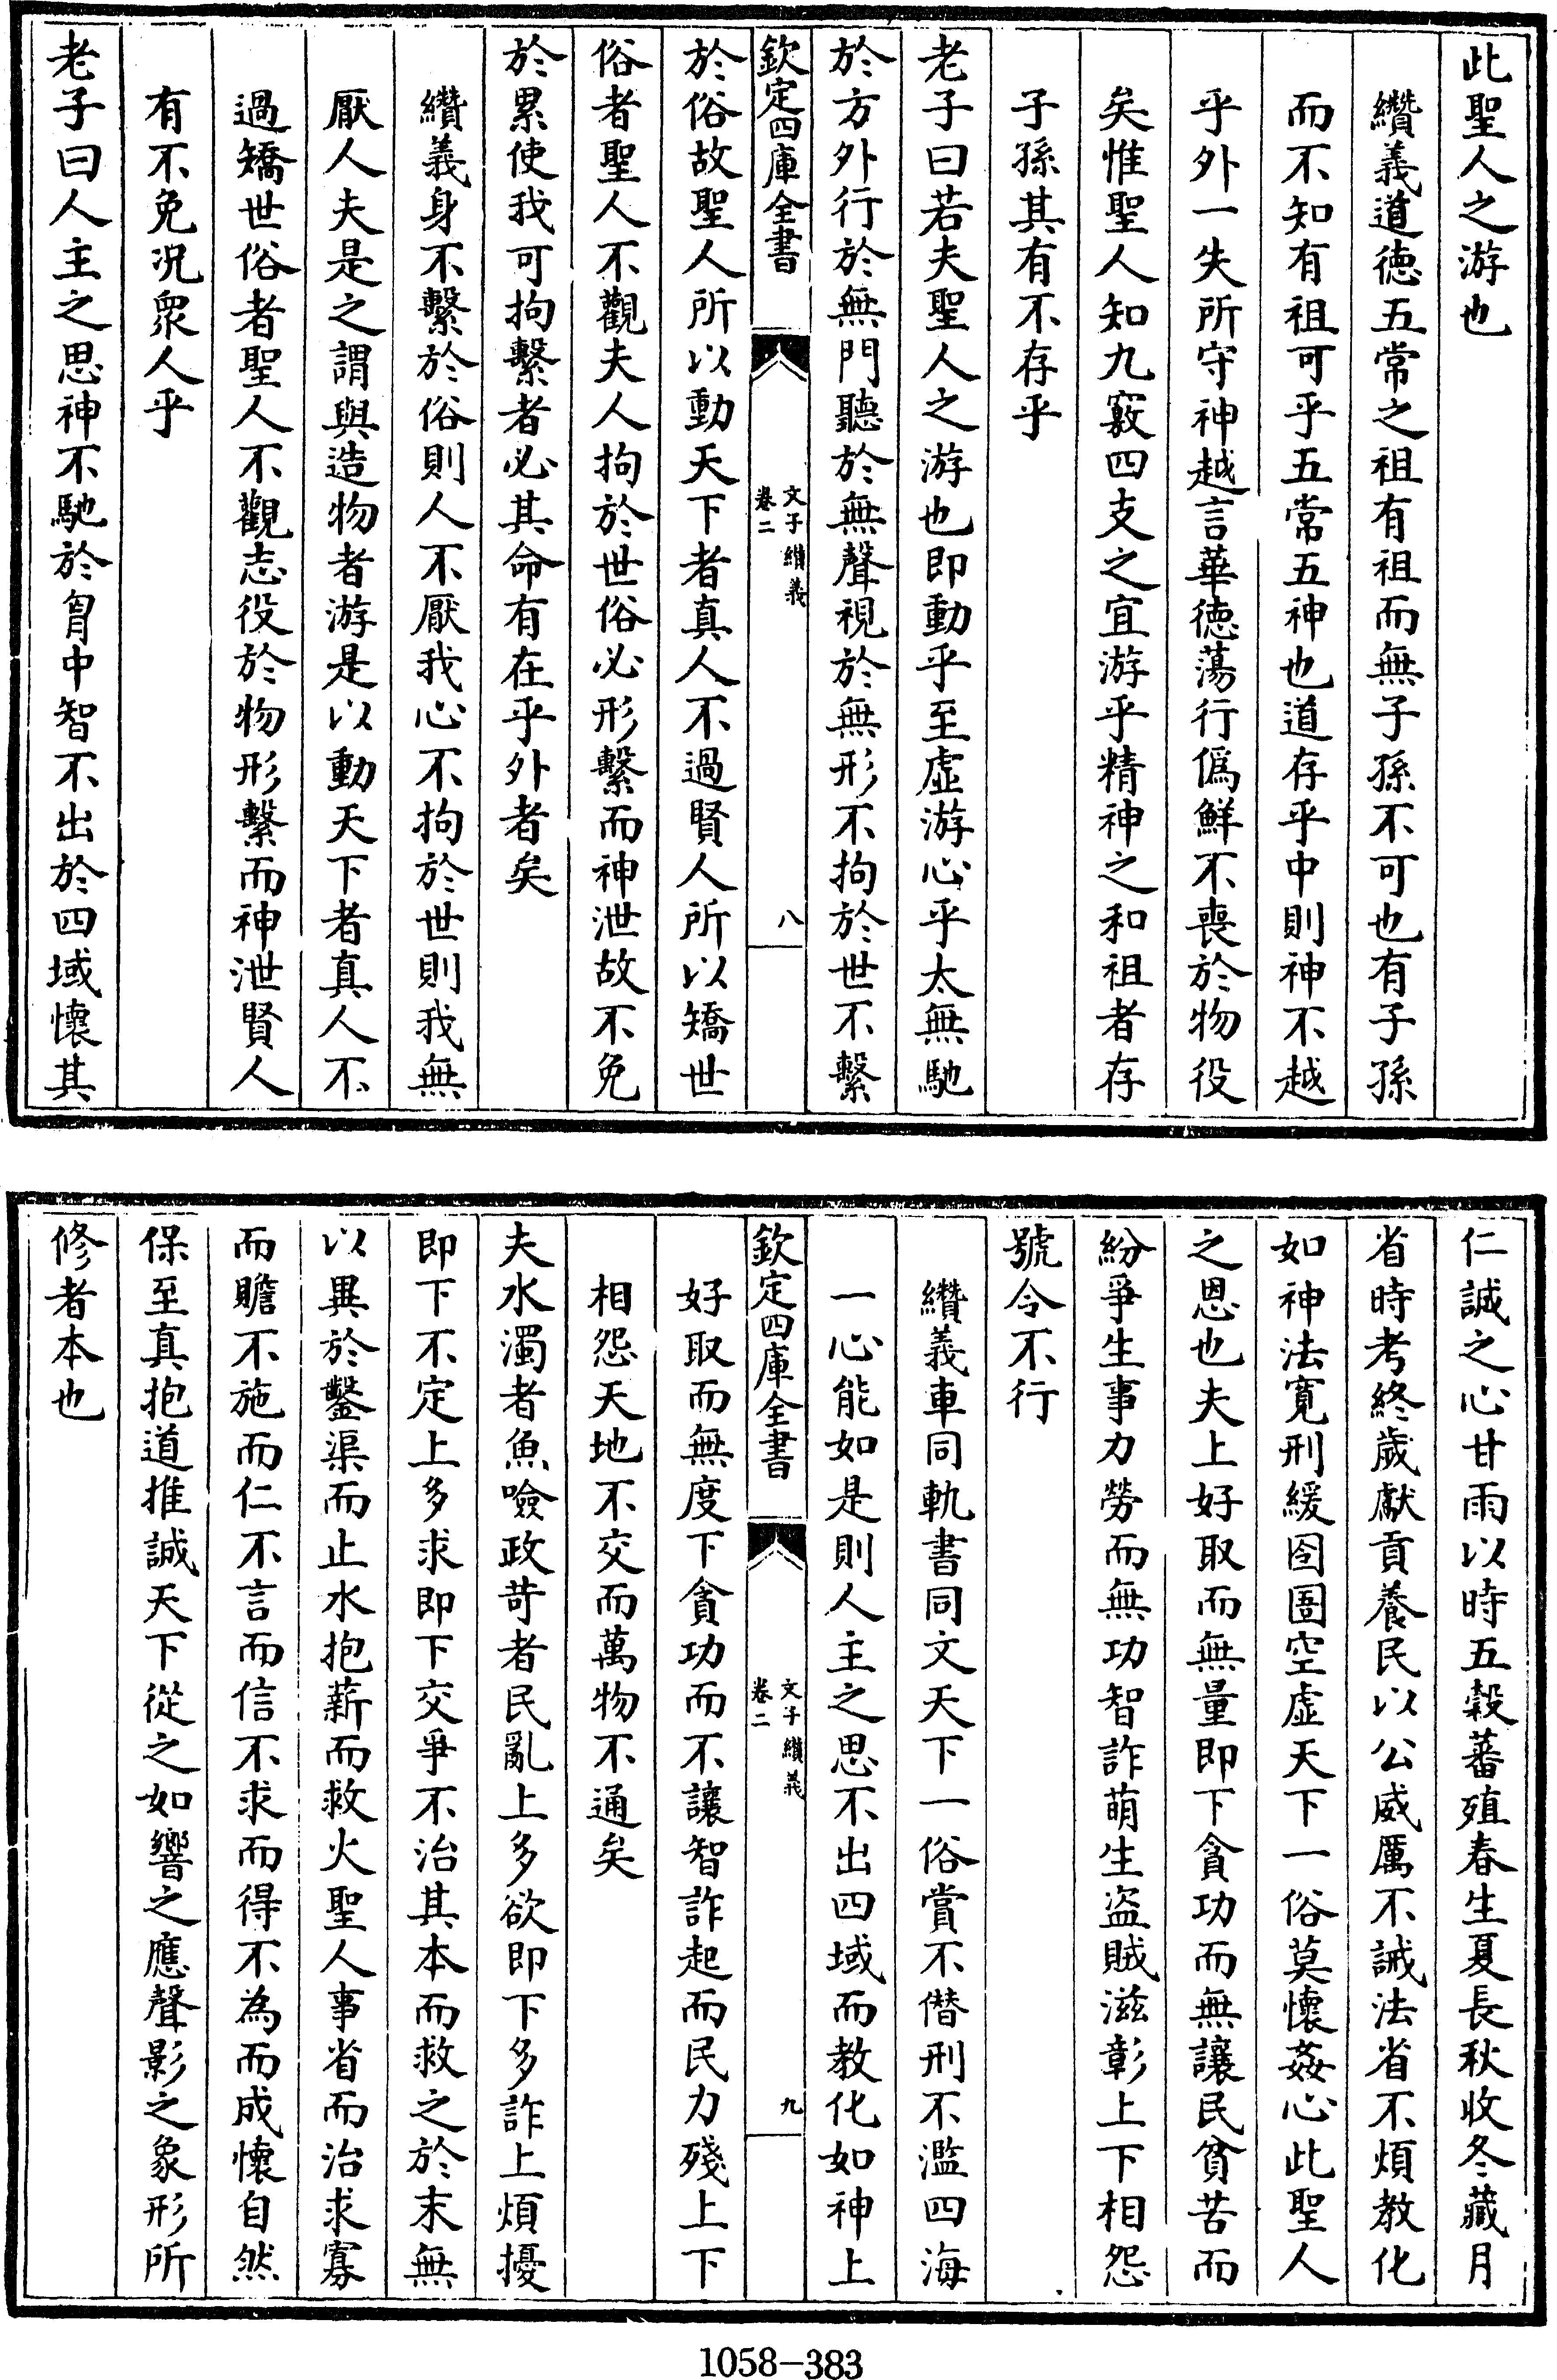 此聖人之游也
纘義道徳五常之祖有祖而無子孫不可也有子孫
而不知有祖可乎五常五神也道存乎中則神不越
乎外一失所守神越言華徳蕩行僞鮮不喪於物役
矣惟聖人知九竅四支之宜游乎精神之和祖者存
子孫其有不存乎
老子曰若夫聖人之游也即動乎至虚游心乎太無馳
於方外行於無門聽於無聲視於無形不拘於世不繫
欽定四庫全書
文子纘義
卷二
八
於俗故聖人所以動天下者真人不過賢人所以矯世
俗者聖人不觀夫人拘於世俗必形繫而神泄故不免
於累使我可拘繫者必其命有在乎外者矣
纘義身不繫於俗則人不厭我心不拘於世則我無
厭人夫是之謂與造物者游是以動天下者真人不
過矯世俗者聖人不觀志役於物形繫而神泄賢人
有不免况衆人乎
老子曰人主之思神不馳於胷中智不出於四域懷其
仁誠之心甘雨以時五穀蕃殖春生夏長秋收冬藏月
省時考終歲獻貢養民以公威厲不誡法省不煩教化
如神法寛刑緩囹圄空虚天下一俗莫懷姦心此聖人
之恩也夫上好取而無量即下貪功而無讓民貧苦而
紛爭生事力勞而無功智詐萌生盗賊滋彰上下相怨
號令不行
纘義車同軌書同文天下一俗賞不僭刑不濫四海
一心能如是則人主之思不出四域而教化如神上
欽定四庫全書
文子纘義
卷二
九
好取而無度下貪功而不讓智詐起而民力殘上下
相怨天地不交而萬物不通矣
夫水濁者魚噞政苛者民亂上多欲即下多詐上煩擾
即下不定上多求即下交爭不治其本而救之於末無
以異於鑿渠而止水抱薪而救火聖人事省而治求寡
而贍不施而仁不言而信不求而得不為而成懷自然
保至真抱道推誠天下從之如響之應聲影之象形所
修者本也
1058-383